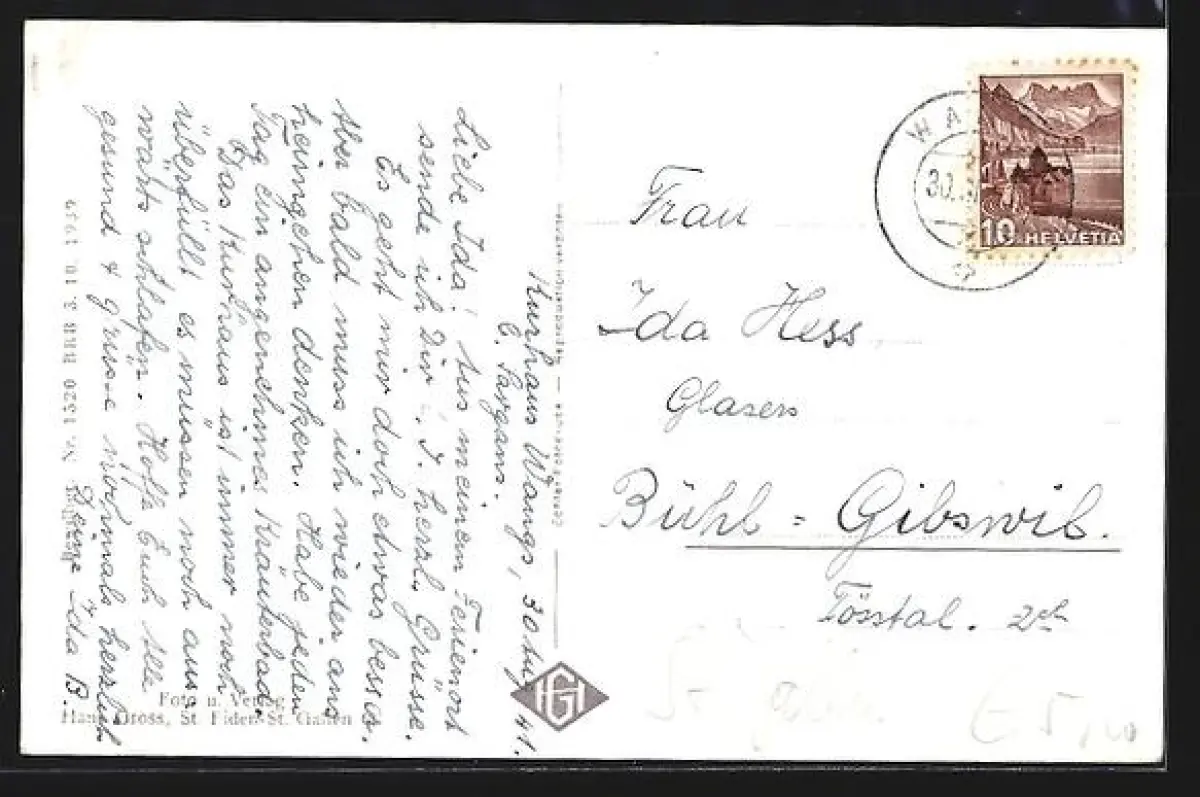 Kurhaus Wangs, 30. Aug. 41.
b. Sargans.
Liebe Ida! Aus meinem Ferienort
sende ich Dir herzl. Grüsse.
Es geht mir doch etwas besser.
Aber bald muss ich wieder ans
heimgehen denken. Habe jeden
Tag ein angenehmes Kräuterbad.
Das Kurhaus ist immer noch
überfüllt es müssen noch aus-
wärts schlafen. Hoffe Euch Alle
gesund & grüsse nochmals herzlich
Deine Ida B.
No. 1520 BRB 3. 10. 1939
Foto u. Verlag
Hans Gross, St. Fiden-St. Gallen
HG
WA
30.
10 HELVETIA
Frau
Ida Hess
Glasers
Bühl = Gibswil.
Tösstal. Zch